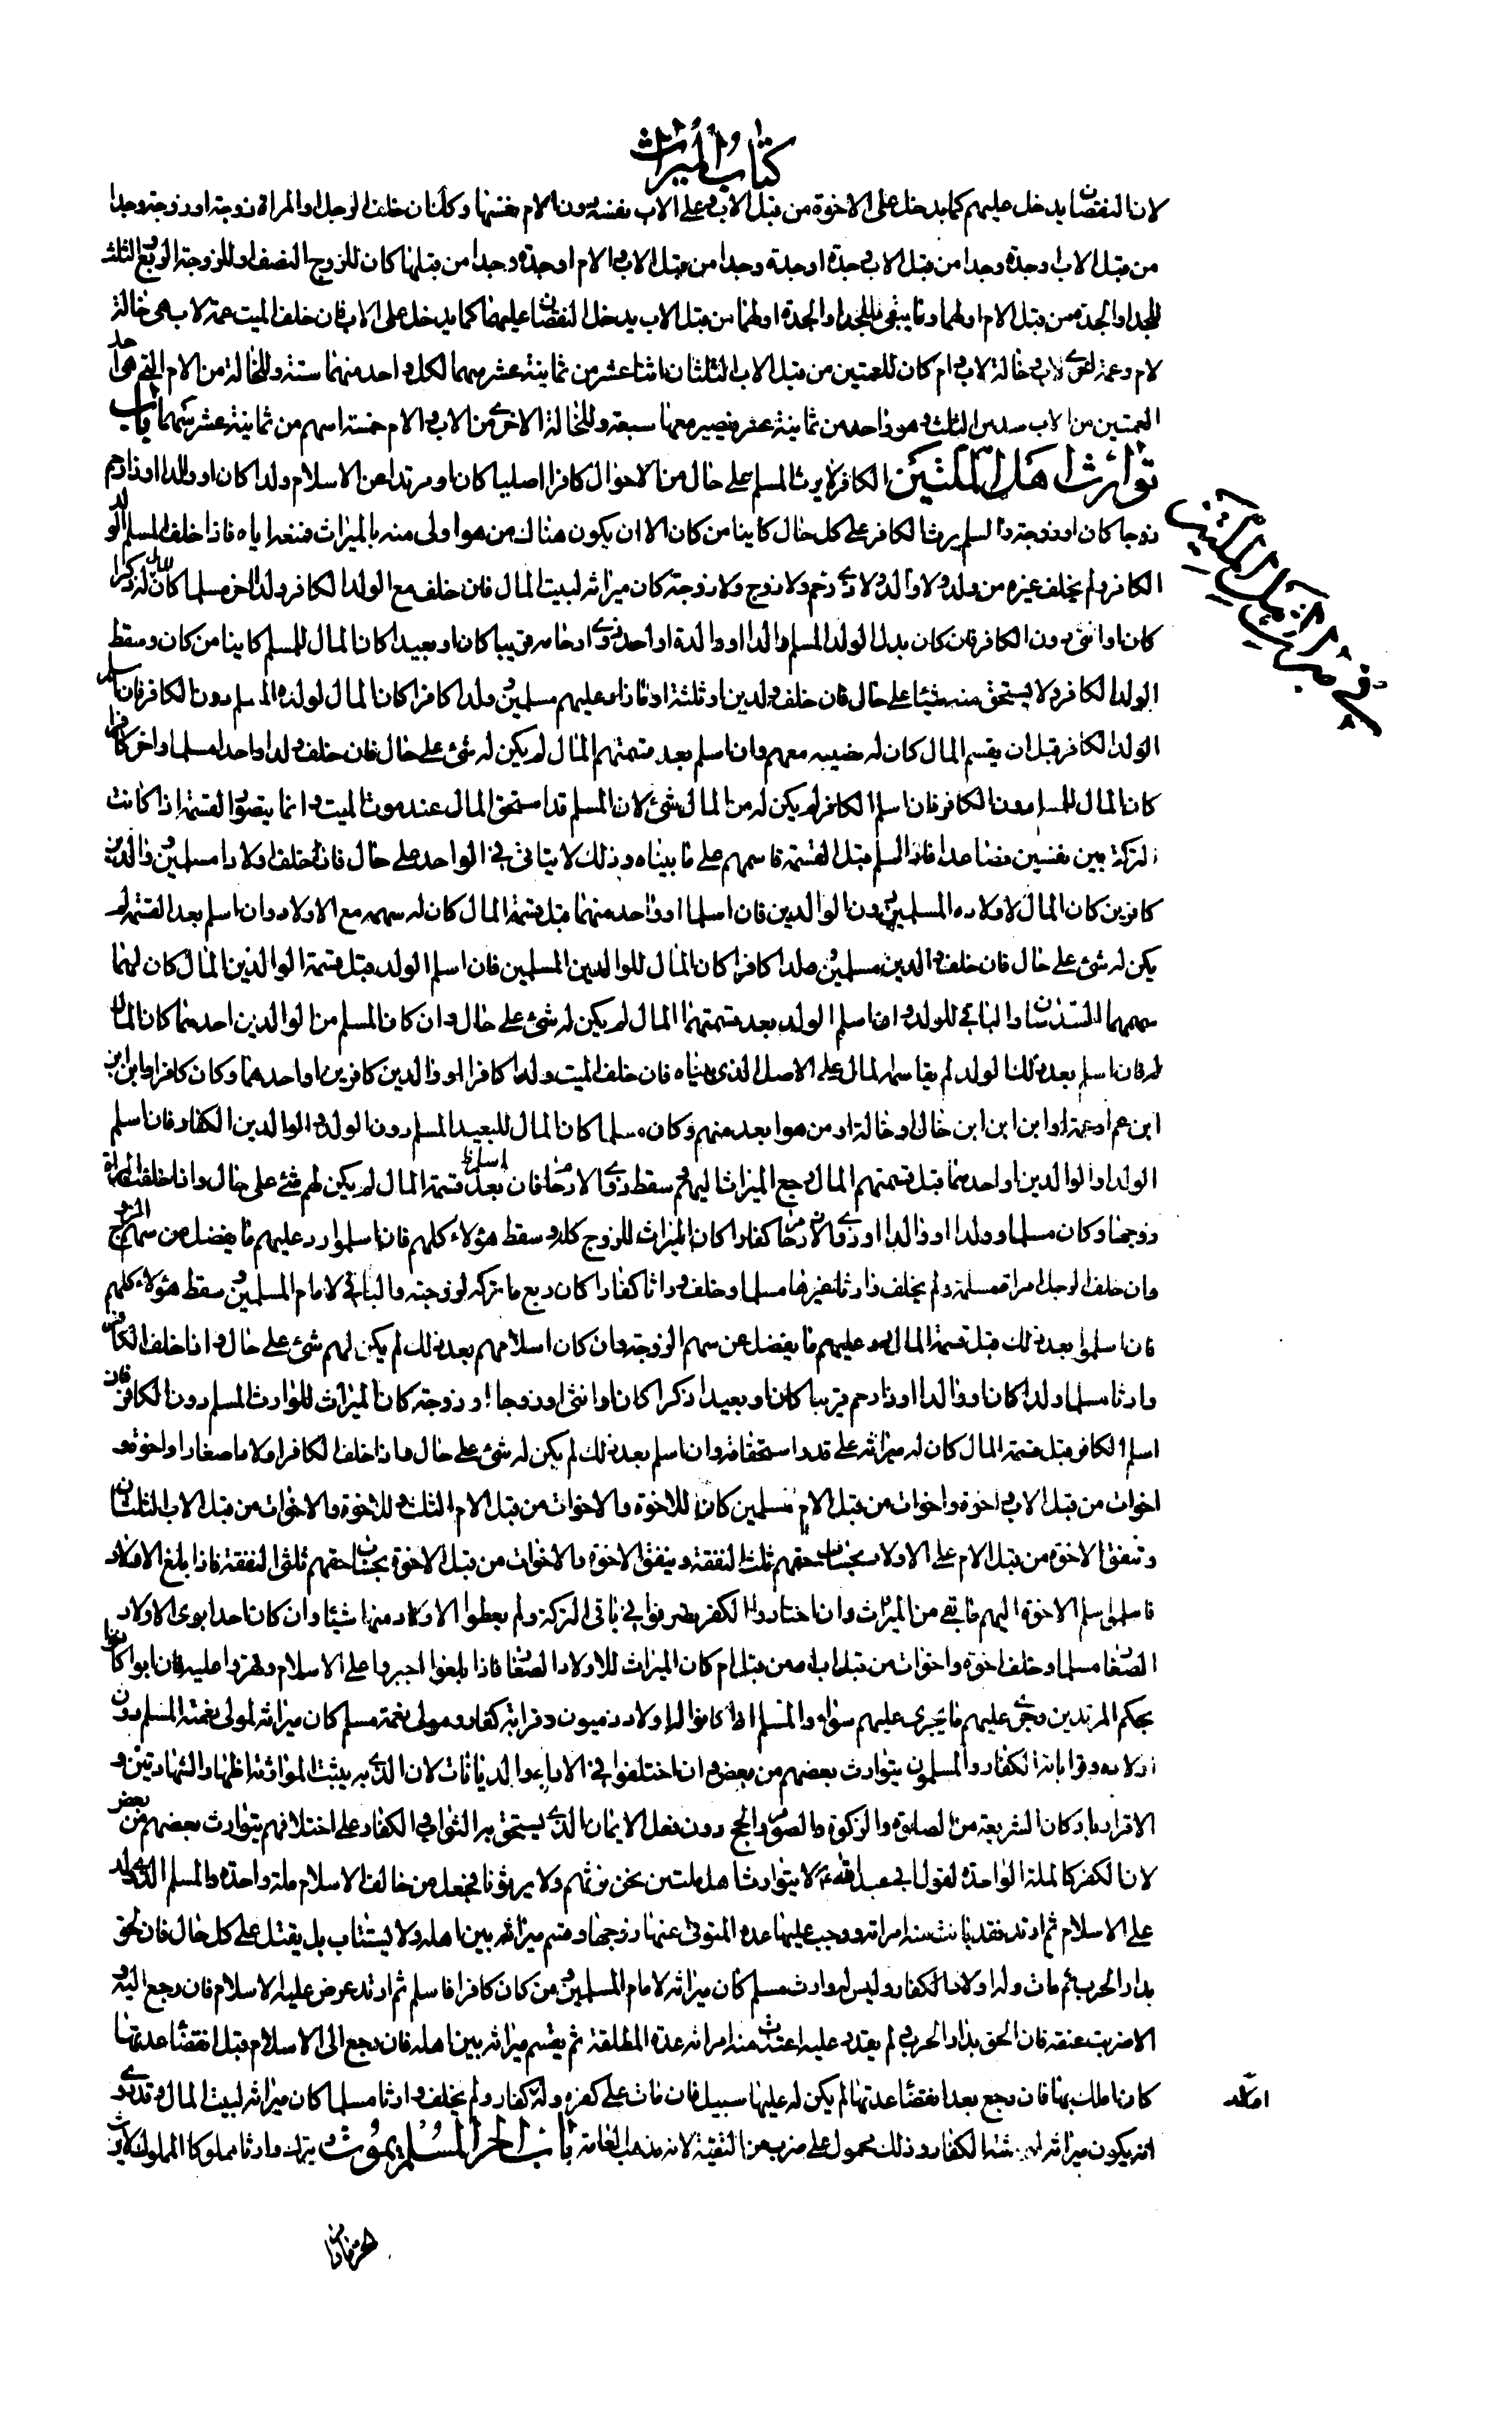 كتاب الميراث
لان النقصان يدخل عليهم كما يدخل على الاخوة من قبل الاب وعلى الاب نفسه دون الام نفسها وكذلك ان خلف الرجل او المراة زوجة او زوجا وجدا
من قبل الاب او جدة وجدا من قبل الاب وجدة او جدة وجدا من قبل الاب والام او جدة وجدا من قبلها كان للزوج النصف او للزوجة الربع والثلث
للجد او الجدة من قبل الام او لهما وما يبقى فللجد او الجدة او لهما من قبل الاب يدخل النقصان عليهما كما يدخل على الاب فان خلف الميت عمة لاب هى خالة
لام وعمة اخرى لاب وخالة لاب وام كان للعمتين من قبل الاب الثلثان اثنا عشر من ثمانية عشر سهما لكل واحد منهما ستة وللخالة من الام التى هى احد
العمتين من الاب سدس الثلث وهو واحد من ثمانية عشر فيصير معها سبعة وللخالة الاخرى من الاب والام خمسة اسهم من ثمانية عشر سهما باب
توارث اهل الملتين الكافر لا يرث المسلم على حال من الاحوال كافرا اصليا كان او مرتدا عن الاسلام ولدا كان او والدا او ذا رحم
زوجا كان او زوجة والمسلم يرث الكافر على كل حال كاينا من كان الا ان يكون هناك من هو اولى منه بالميراث فمنعه اياه فاذا خلف المسلم الولد
الكافر ولم يخلف غيره من ولد ولا والد ولا ذى رحم ولا زوج ولا زوجة كان ميراثه لبيت المال فان خلف مع الولد الكافر ولدا اخر مسلما كان المال له ذكرا
كان او انثى دون الكافر فان كان بدل الولد المسلم والدا او والدة او احد ذوى ارحامه قريبا كان او بعيدا كان المال للمسلم كاينا من كان وسقط
الولد الكافر ولا يستحق منه شيئا على حال فان خلف ولدين او ثلثة او ما زاد عليهم مسلمين وولدا كافرا كان المال لولده المسلم دون الكافر فان اسلم
الولد الكافر قبل ان يقسم المال كان له نصيبه معهم وان اسلم بعد قسمتهم المال لم يكن له شئ على حال فان خلف ولدا واحدا مسلما واخر كافرا
كان المال للمسلم دون الكافر فان اسلم الكافر لم يكن له من المال شئ لان المسلم قد استحق المال عند موت الميت وانما يتصور القسمة اذا كانت
التركة بين نفسين فصاعدا فاذا اسلم قبل القسمة قاسمهم على ما بيناه وذلك لا يتاتى فى الواحد على حال فان خلف اولادا مسلمين ووالدين
كافرين كان المال لاولاده المسلمين دون الوالدين فان اسلما او واحد منهما قبل قسمة المال كان له سهمه مع الاولاد وان اسلم بعد القسمة لم
يكن له شئ على حال فان خلف والدين مسلمين وولدا كافرا كان المال للوالدين المسلمين فان اسلم الولد قبل قسمة الوالدين المال كان لهما
سهمهما السدسان والباقى للولد وان اسلم الولد بعد قسمتهما المال لم يكن له شئ على حال وان كان المسلم من الوالدين احدهما كان المال
له فان اسلم بعد ذلك الولد لم يقاسمه المال على الاصل الذى بيناه فان خلف الميت ولدا كافرا او والدين كافرين او احدهما وكان كافرا وابن ابن
ابن عم او عمة او ابن ابن ابن خال او خالة او من هو ابعد منهم وكان مسلما كان المال للبعيد المسلم دون الولد والوالدين الكفار فان اسلم
الولد او الوالدين او احدهما قبل قسمتهم المال رجع الميراث اليهم وسقط ذوى الارحام فان اسلموا بعد قسمة المال لم يكن لهم شئ على حال واذا خلفت المراة
زوجها وكان مسلما وولدا او والدا او ذوى الارحام كفارا كان الميراث للزوج كله وسقط هؤلاء كلهم فان اسلموا رد عليهم ما يفضل من سهم الزوج
وان خلف الرجل امراة مسلمة ولم يخلف وارثا غيرها مسلما وخلف وراثا كفارا كان ربع ما تركه لزوجته والباقى لامام المسلمين وسقط هؤلاء كلهم
فان اسلموا بعد ذلك قبل قسمة المال رد عليهم ما يفضل عن سهم الزوجة وان كان اسلامهم بعد ذلك لم يكن لهم شئ على حال واذا خلف الكافر
وارثا مسلما ولدا كان او والدا او ذا رحم قريبا كان او بعيدا ذكرا كان او انثى او زوجا او زوجة كان الميراث للوارث المسلم دون الكافر فان
اسلم الكافر قبل قسمة المال كان له ميراثه على قدر استحقاقه وان اسلم بعد ذلك لم يكن له شئ على حال واذا خلف الكافر اولادا صغارا واخوة و
اخوات من قبل الاب واخوة واخوات من قبل الام مسلمين كان للاخوة والاخوات من قبل الام الثلث وللاخوة والاخوات من قبل الاب الثلثان
وتنفق الاخوة من قبل الام على الاولاد بحساب حقهم ثلث النفقة وينفق الاخوة والاخوات من قبل الاخوة بحساب حقهم ثلثى النفقة فاذا بلغ الاولاد
فاسلموا سلم الاخوة اليهم ما بقى من الميراث وان اختاروا الكفر تصرفوا فى باقى التركة ولم يعطوا الاولاد منها شيئا وان كان احد ابوى الاولاد
الصغار مسلما وخلف اخوة واخوات من قبل اب او من قبل ام كان الميراث للاولاد الصغار فاذا بلغوا اجبروا على الاسلام وقهروا عليه فان ابوا كانوا
بحكم المرتدين وجرى عليهم ما يجرى عليهم سواء والمسلم اذا كان له اولاد ذميون وقرابة كفار ومولى نعمة مسلم كان ميراثه لمولى نعمته المسلم دون
اولاده وقراباته الكفار والمسلمون يتوارث بعضهم من بعض وان اختلفوا فى الاراء والديانات لان الذى به يثبت الموارثة اظهار الشهادتين و
الاقرار باركان الشريعة من الصلوة والزكوة والصوم والحج دون فعل الايمان الذى يستحق به الثواب والكفار على اختلافهم يتوارث بعضهم من بعض
لان الكفر كالملة الواحدة لقول ابى عبد الله ع لا يتوارث اهل ملتين نحن نرثهم ولا يرثونا فجعل من خالف الاسلام ملة واحدة والمسلم الذى ولد
على الاسلام ثم ارتد فقد بانت منه امراته ووجب عليها عدة المتوفى عنها زوجها وقسم ميراثه بين اهله ولا يستتاب بل يقتل على كل حال فان لحق
بدار الحرب ثم مات وله اولاد كفار وليس له وارث مسلم كان ميراثه لامام المسلمين ومن كان كافرا فاسلم ثم ارتد عرض عليه الاسلام فان رجع اليه و
الا ضربت عنقه فان لحق بدار الحرب ولم يقدر عليه اعتدت منه امراته عدة المطلقة ثم يقسم ميراثه بين اهله فان رجع الى الاسلام قبل انقضاء عدتها
كان املك بها فان رجع بعد انقضاء عدتها لم يكن له عليها سبيل فان مات على كفره وله كفار ولم يخلف وارثا مسلما كان ميراثه لبيت المال وقد روى
انه يكون ميراثه الكفار وذلك محمول على ضرب من التقية لانه مذهب العامة باب الحر المسلم يموت ويترك وارثا مملوكا المملوك لا يرث
فى ميراث اهل الملتين
اولاد